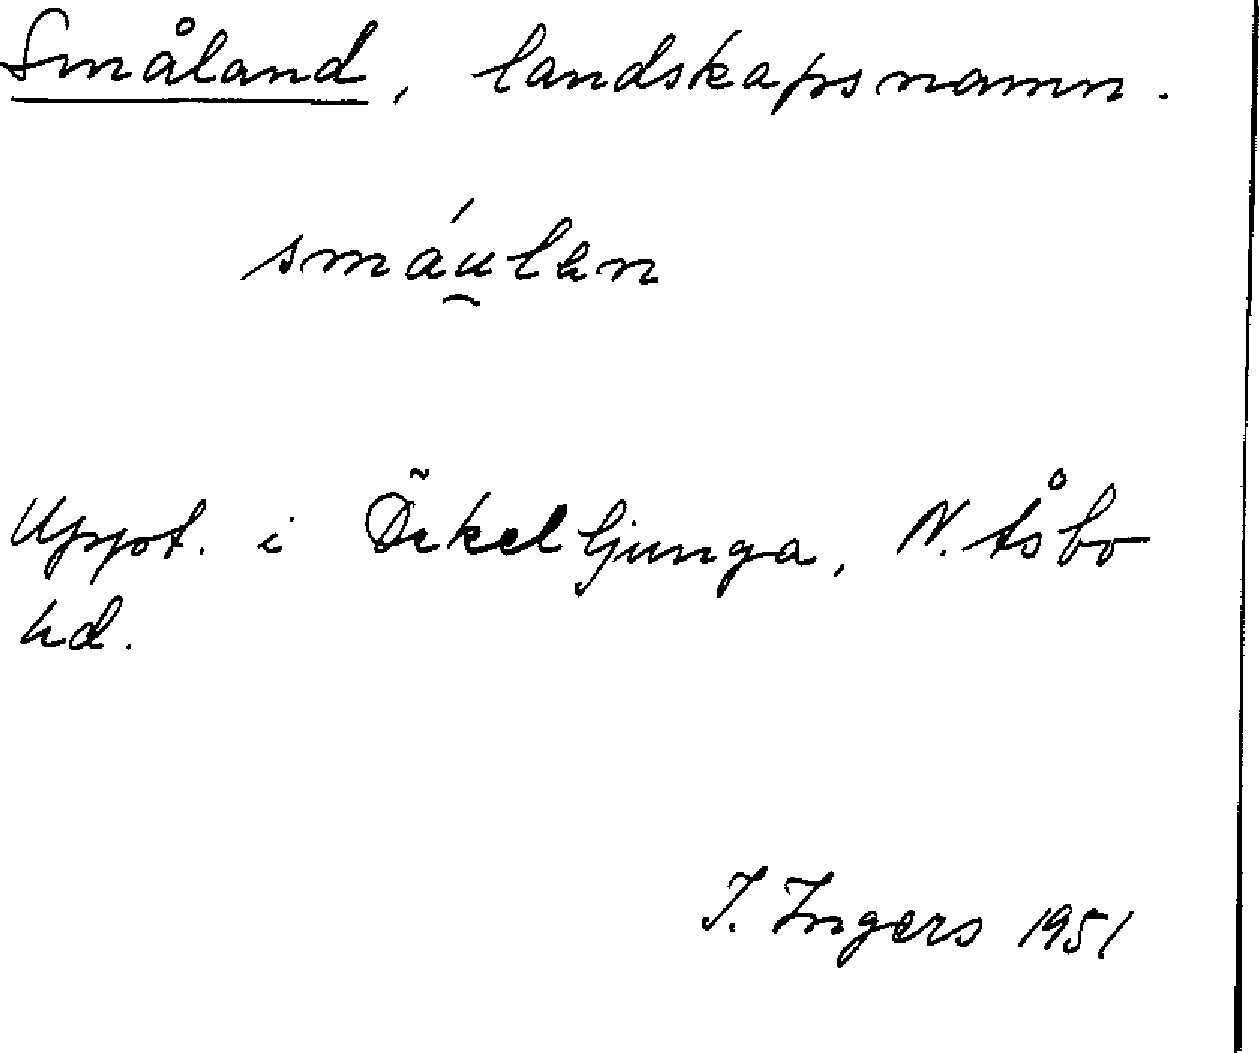 Småland, landskapsnamn.
smáu̯lan
Uppt. i Örkelljunga, N. Åsbo
hd.
I. Ingers 1951